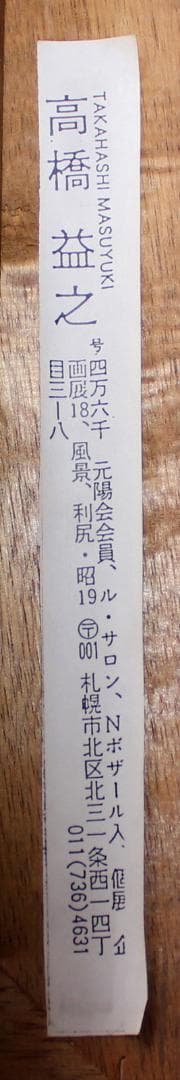 高橋 益之
TAKAHASHI MASUYUKI
号四万六千 元陽会会員、ル・サロン、Nボザール入、個展 企
画展18、風景、利尻・昭19 〒001 札幌市北区北三一条西一四丁
目三ー八
011(736)4631